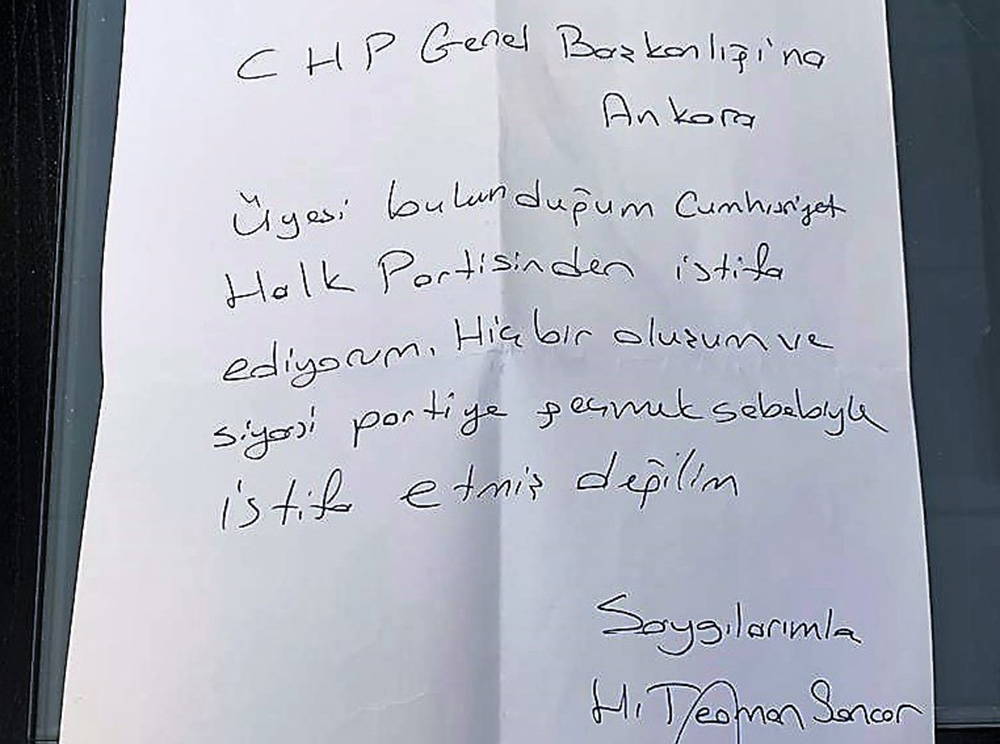 CHP Genel Başkanlığı'na
Ankara
Üyesi bulunduğum Cumhuriyet
Halk Partisinden istifa
ediyorum. Hiç bir oluşum ve
siyasi partiye geçmek sebebiyle
istifa etmiş değilim
Saygılarımla
H. Teoman Sancar